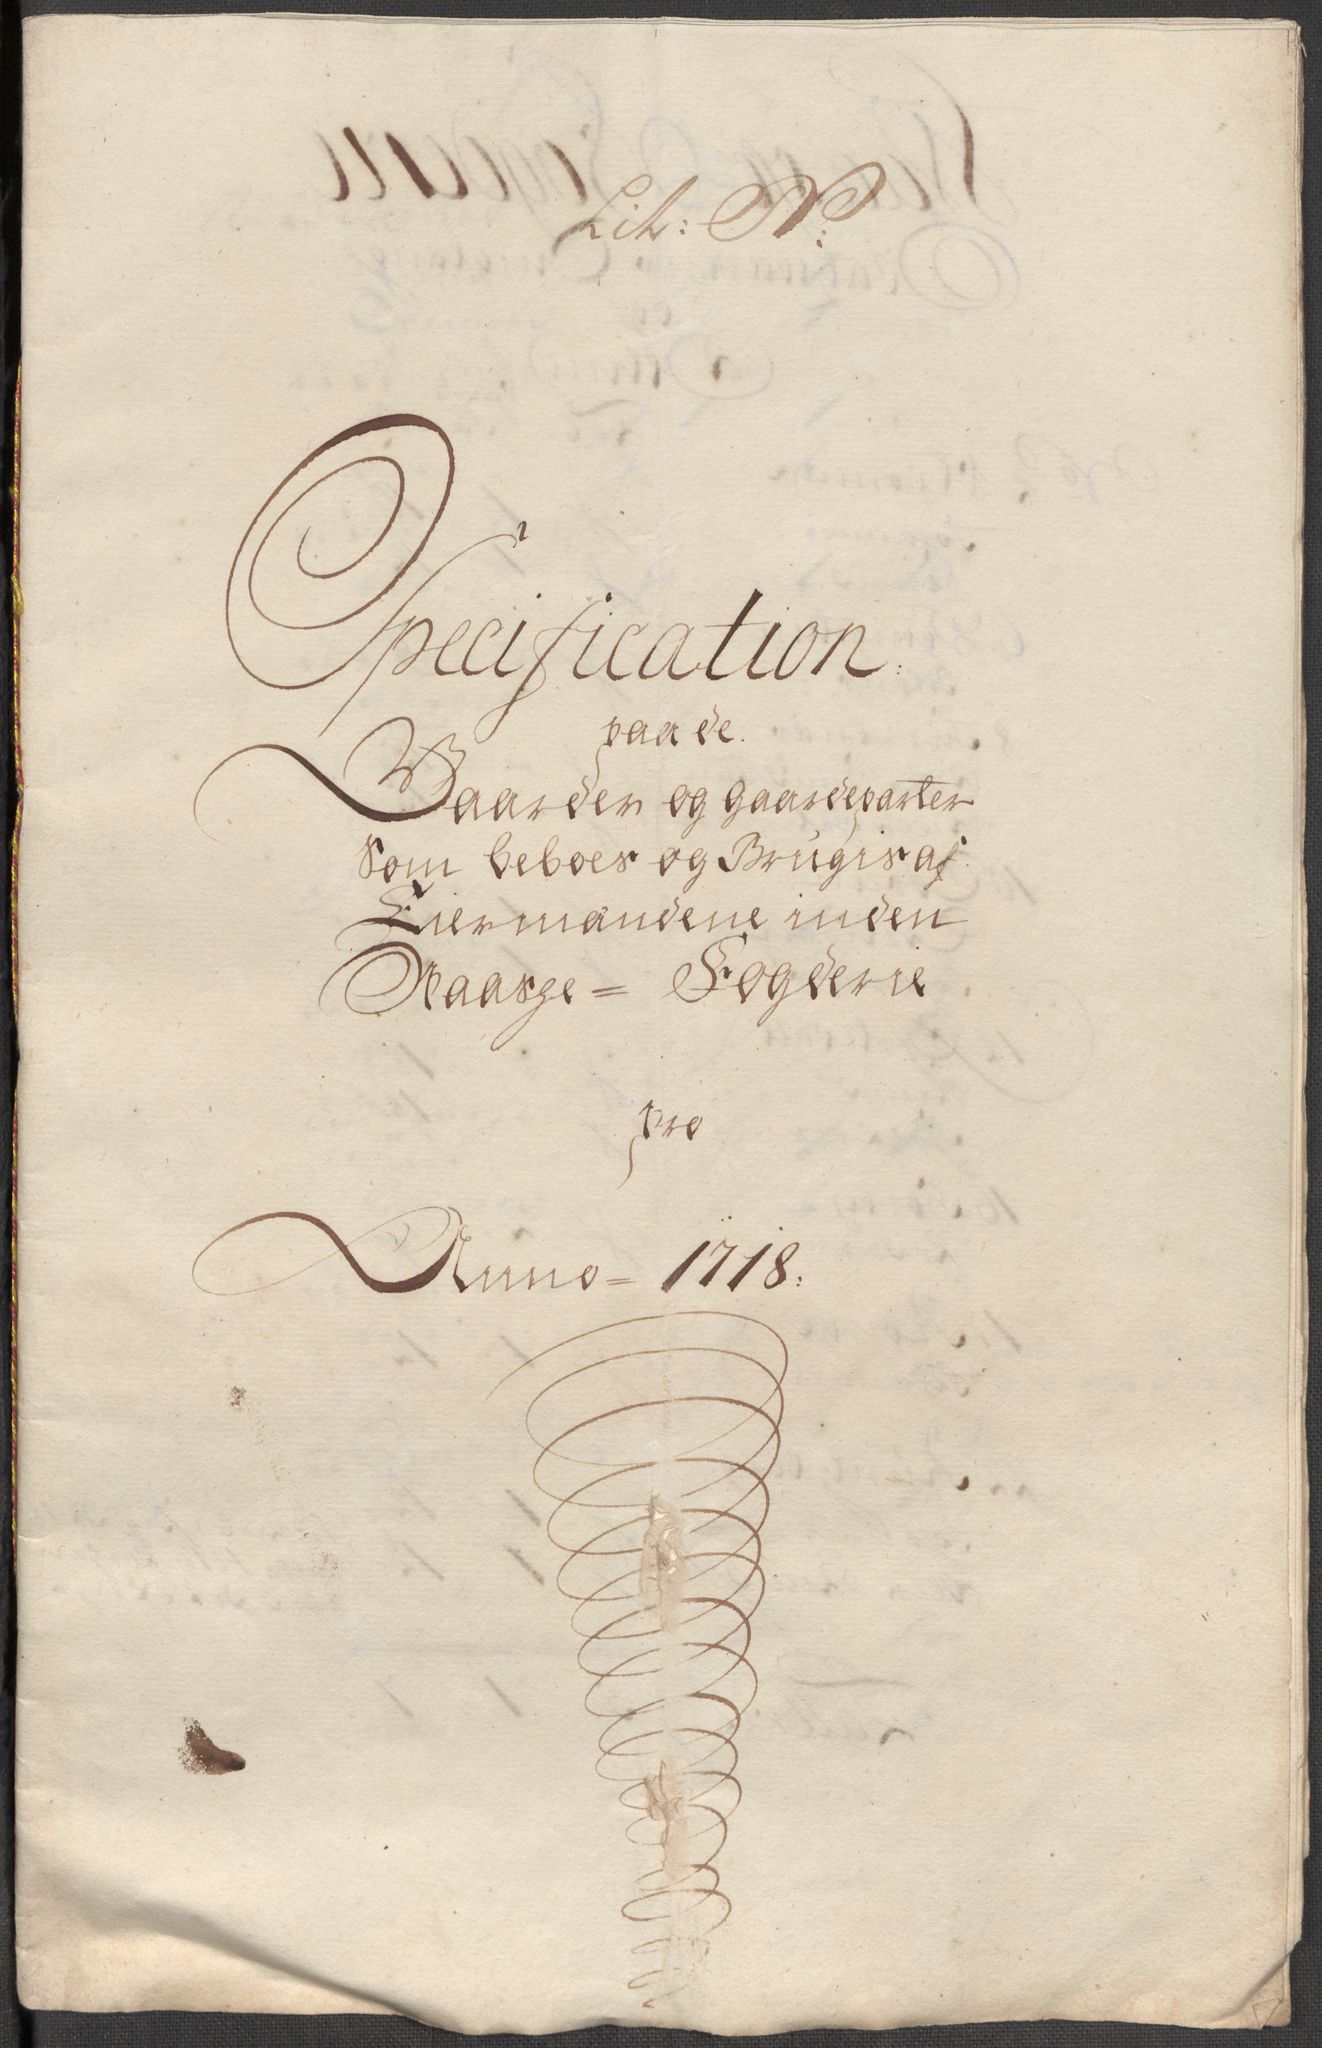 Lit: N:
Specification
paa de
Gaarder og gaardeparter
Som beboes og Brugis af
Eiermandene inden
Fogderie
pro
Anno = 1718: